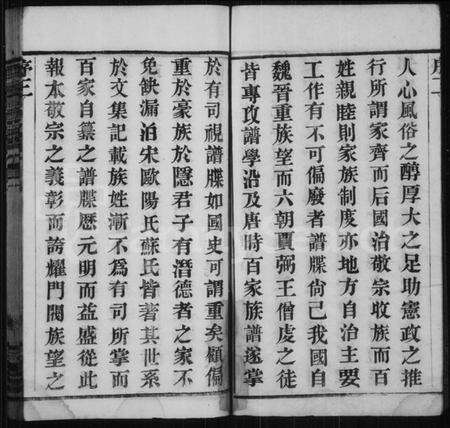 人心風俗之醇厚大之足助憲政之推
行所謂家齊而后國治敬宗收族而百
姓親睦則家族制度亦地方自治主要
工作有不可偏廢者譜牒尙已我國自
魏晉重族望而六朝賈弼王僧虔之徒
皆專攻譜學沿及唐時百家族譜遂掌
於有司視譜牒如國史可謂重矣顧偏
重於豪族於隱君子有潛德者之家不
免缺漏洎宋歐陽氏蘇氏皆著其世系
於文集記載族姓漸不爲有司所掌而
百家自纂之譜牒歷元明而益盛從此
報本敬宗之義彰而誇耀門閥族望之
序三